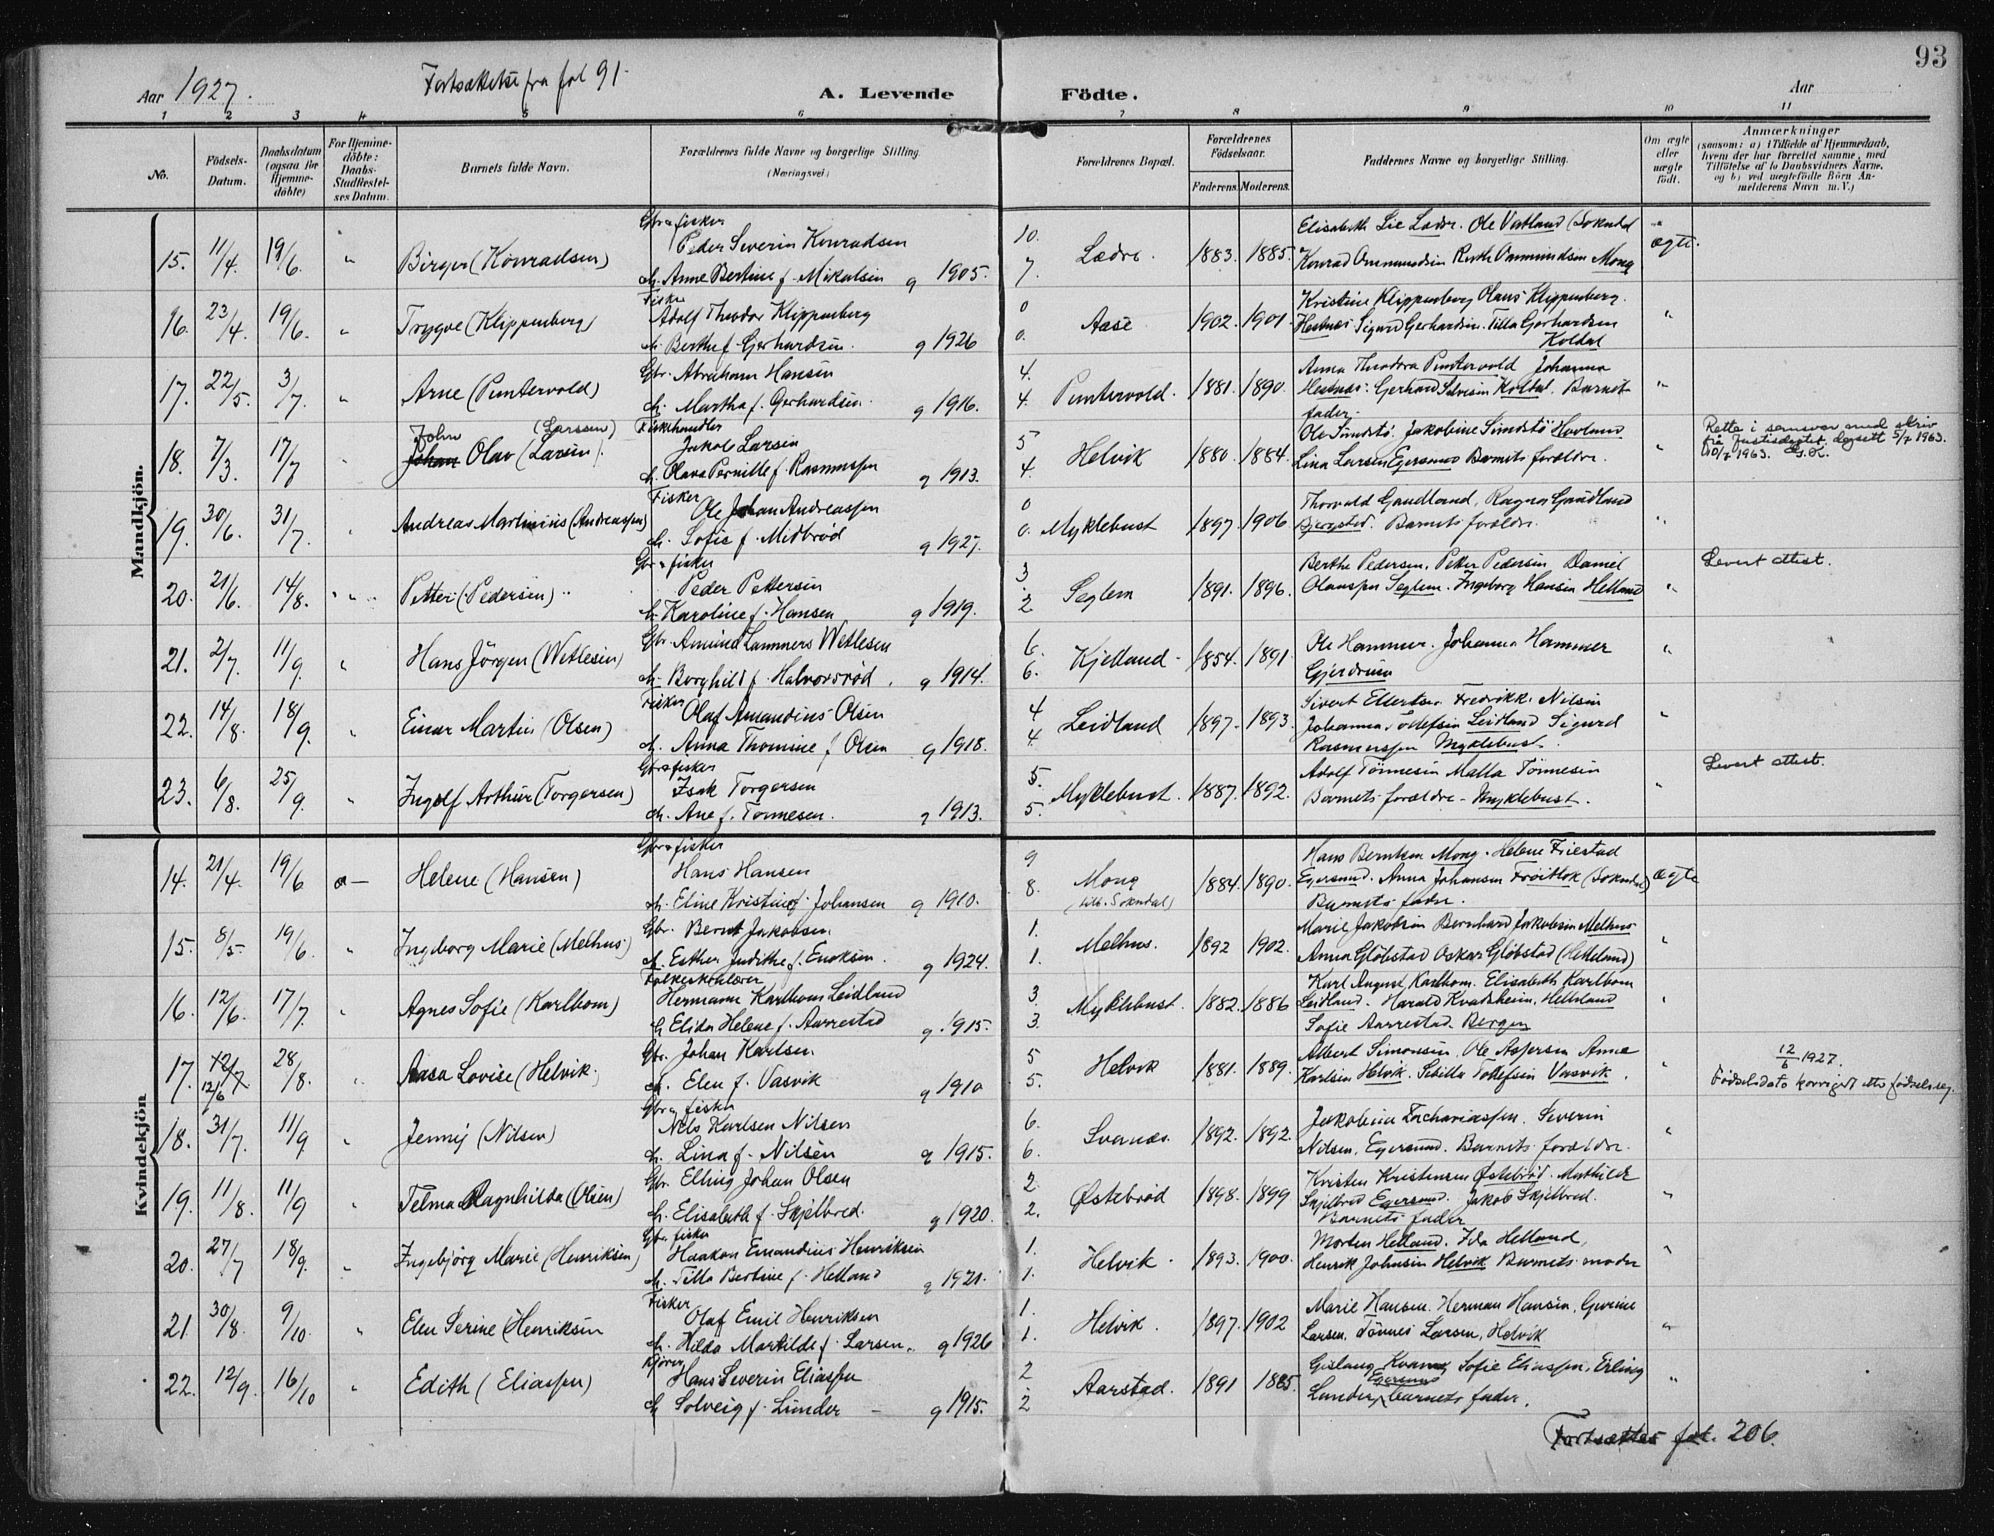 93
Aar 1927. Fortsættelse fra fol 91. A. Levende Födte. Aar
1 2 3 4 5 6 7 8 9 10 11
No.
Födsels-Datum.
Daabsdatum (ogsaa for Hjemmedöbte)
For Hjemmedöbte: Daabs-Stadfæstelses Datum.
Barnets fulde Navn.
Forældrenes fulde Navne og borgerlige Stilling.
(Næringsvei)
Forældrenes Bopæl.
Forældrenes Födselsaar.
Faderens. Moderens.
Faddernes Navne og borgerlige Stilling.
Om ægte eller uægte födt.
Anmærkninger
(saasom: a) i Tilfælde af Hjemmedaab, hvem der har forrettet samme, med Tilföielse af to Daabsvidners Navne, og b) ved uegtefödte Börn Anmelderens Navn m. V.)
Mandkjön.
Gbr. & fisker
15. 11/4. 19/6. " Birger (Konradsen) Peder Severin Konradsen
h. Anne Bertine f. Mikalsen g 1905. 10. 7. Lædre. 1883. 1885. Elisabeth Lie Lædre. Ole Vatland (Sokndal
Konrad Ommundsen Ruth Ommundsen Mong ægte.
Fisker
16. 23/4. 19/6. " Trygve (Klippenberg) Adolf Theodor Klippenberg
h. Berthe f. Gerhardsen. g 1926 0 0. Aase 1902. 1901. Kristine Klippenberg Olaus Klippenberg.
Hestnes Sigurd Gerhardsen. Tilla Gerhardsen
Koldal "
17. 22/5. 3/7. " Arne (Puntervold) Gbr. Abraham Hansen
h. Martha f. Gerhardsen. g 1916. 4. 4. Puntervold. 1881. 1890. Anna Theodora Puntervold Johanna
Hestnes. Gerhard Salvesen Koldal. Barnets
fader. "
John (Larssen) Fiskehandler
18. 7/3. 17/7 " Johan Olav (Larsen). Jakob Larsen
h. Olava Pernille f. Rasmussen g 1913. 5 4. Helvik 1880. 1884. Ole Sundstö. Jakobine Sundstö Hovland
Lina Larsen Egersund Barnets forældre. " Retta i samsvar med skriv
frå Justisdeptet. dagsett 5/7 1963.
10/7 1963.
Fisker
19. 30/6. 31/7. " Andreas Martinius (Andreassen) Ole Johan Andreassen
h. Sofie f. Midbröd g 1927. 0 0. Myklebust 1897. 1906. Thorvald Gaudland, Ragna Gaudland
Bjerstad. Barnets forældre. "
Gbr. & fisker
20. 21/6. 14/8. " Petter (Pedersen) Peder Pettersen
h. Karoline f. Hansen g 1919. 3 2 Seglem 1891. 1896. Berthe Pedersen, Peter Pedersen Daniel
Olaussen Seglem. Ingeborg Hansen Helland " Levert attest.
21. 2/7. 11/9. " Hans Jörgen (Wetlesen) Gbr. Amund Lammers Wetlesen
h. Borghild f. Halvorsröd. g 1914. 6. 6. Kjelland. 1854. 1891. Ole Hammer. Johanna Hammer
Gjerdrum "
Fisker
22. 14/8. 18/9. " Einar Martin (Olsen) Olaf Amandius Olsen
h. Anna Thomine f. Olsen g 1918. 4 4. Leidland 1897. 1893. Sivert Ellertsen. Fredrikke Nilsen
Johanna Tollefsen Leidland Sigurd
Rasmussen Myklebust. "
Gbr & fisker
23. 6/8. 25/9. " Ingolf Arthur (Torgersen) Isak Torgersen
h. Ane f. Tönnesen. g 1913. 5. 5. Myklebust. 1887. 1892. Adolf Tönnesen Malla Tönnesen
Barnets forældre - Myklebust. " Levert attest.
Kvindekjön
Gbr & fisker
14. 21/4. 19/6 Helene (Hansen) Hans Hansen
h. Eline Kristine f. Johansen g 1910. 9 8. Mong
(till. Sokndal) 1884. 1890. Hans Berntsen Mong. Helene Friestad
Egersund. Anna Johansen Fröitlok (Sokndal)
Barnets fader. ægte
15. 8/5. 19/6. " Ingeborg Marie (Melhus) Gbr. Bernt Jakobsen
h. Esther Judithe f. Enoksen. g 1924. 1. 1. Melhus. 1892 1902. Marie Jakobsen Bernhard Jakobsen Melhus
Anna Glöbstad Oskar Glöbstad (Helleland) "
Folkeskolelærer
16. 12/6. 17/7. " Agnes Sofie (Karlbom) Hermann Karlbom Leidland
h. Elida Helene f. Aarrestad g. 1915. 3 3. Myklebust. 1882. 1886 Karl August Karlbom. Elisabeth Karlbom
Leidland. Harald Kvadsheim, Helleland
Sofie Aarrestad. Bergen "
17. 12/7 12/6 28/8. " Aasa Lovise (Helvik. Gbr. Johan Karlsen
h. Elen f. Vasvik g 1910 5 5. Helvik 1881. 1889. Albert Simonsen, Ole Aspersen Anna
Karlsen Helvik. Sibilla Tollefsen Vasvik. " 12/6 1927.
Födselsdato korrigert etter födselsreg.
Gbr og fisker
18. 31/7. 11/9 " Jenny (Nilsen) Nils Karlsen Nilsen
h. Lina f. Nilsen g 1915. 6. 6. Svanes. 1892. 1892. Jakobine Zachariassen. Severin
Nilsen, Egersund. Barnets forældre. "
19. 11/8. 11/9 " Telma Ragnhilda (Olsen) Gbr. Elling Johan Olsen
h. Elisabeth f. Skjelbred. g 1920. 2. 2. Östebröd 1898. 1899 Kristen Kristensen Östebröd. Mathilde
Skjelbred Egersund. Jakob Skjelbred.
Barnets fader "
Gbr. fisker
20. 27/7 18/9. " Ingebjörg Marie (Henriksen) Haakon Emandius Henriksen
h. Tilla Bertine f. Helland g 1921. 1. 1. Helvik. 1893. 1900. Morten Helland. Ida Helland,
Henrik Johnsen Helvik Barnets moder "
Fisker
21 30/8. 9/10. " Elen Serine (Henriksen Olaf Emil Henriksen
h. Hilda Matilde f. Larsen. g 1926 1. 1. Helvik. 1897. 1902 Marie Hansen. Herman Hansen, Gurine
Larsen, Tönnes Larsen, Helvik "
Kjörer
22. 12/9. 16/10 " Edith (Eliassen) Hans Severin Eliassen
h Solveig f. Lunder g 1915. 2 2 Aarstad. 1891 1885. Gislaug Kvame Sofie Eliassen, Erling
Lunder Egersund barnets fader. "
Fortsættes fol. 206.